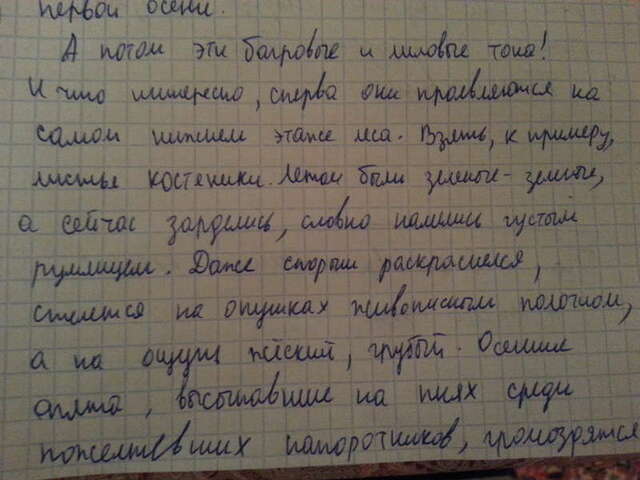 первой осени.
А потом эти багровые и лиловые тона!
И что интересно, сперва они проявляются на
самом нижнем этаже леса. Взять, к примеру,
листье костяники. Летом были зеленые-зеленые,
а сейчас зарделись, словно налились густым
румянцем. Даже спорыш раскраснелся,
стелется на опушках живописным пологом,
а на ощупь жёсткий, грубый. Осенние
опята, высыпавшие на пнях среди
пожелтевших папоротников, громоздятся